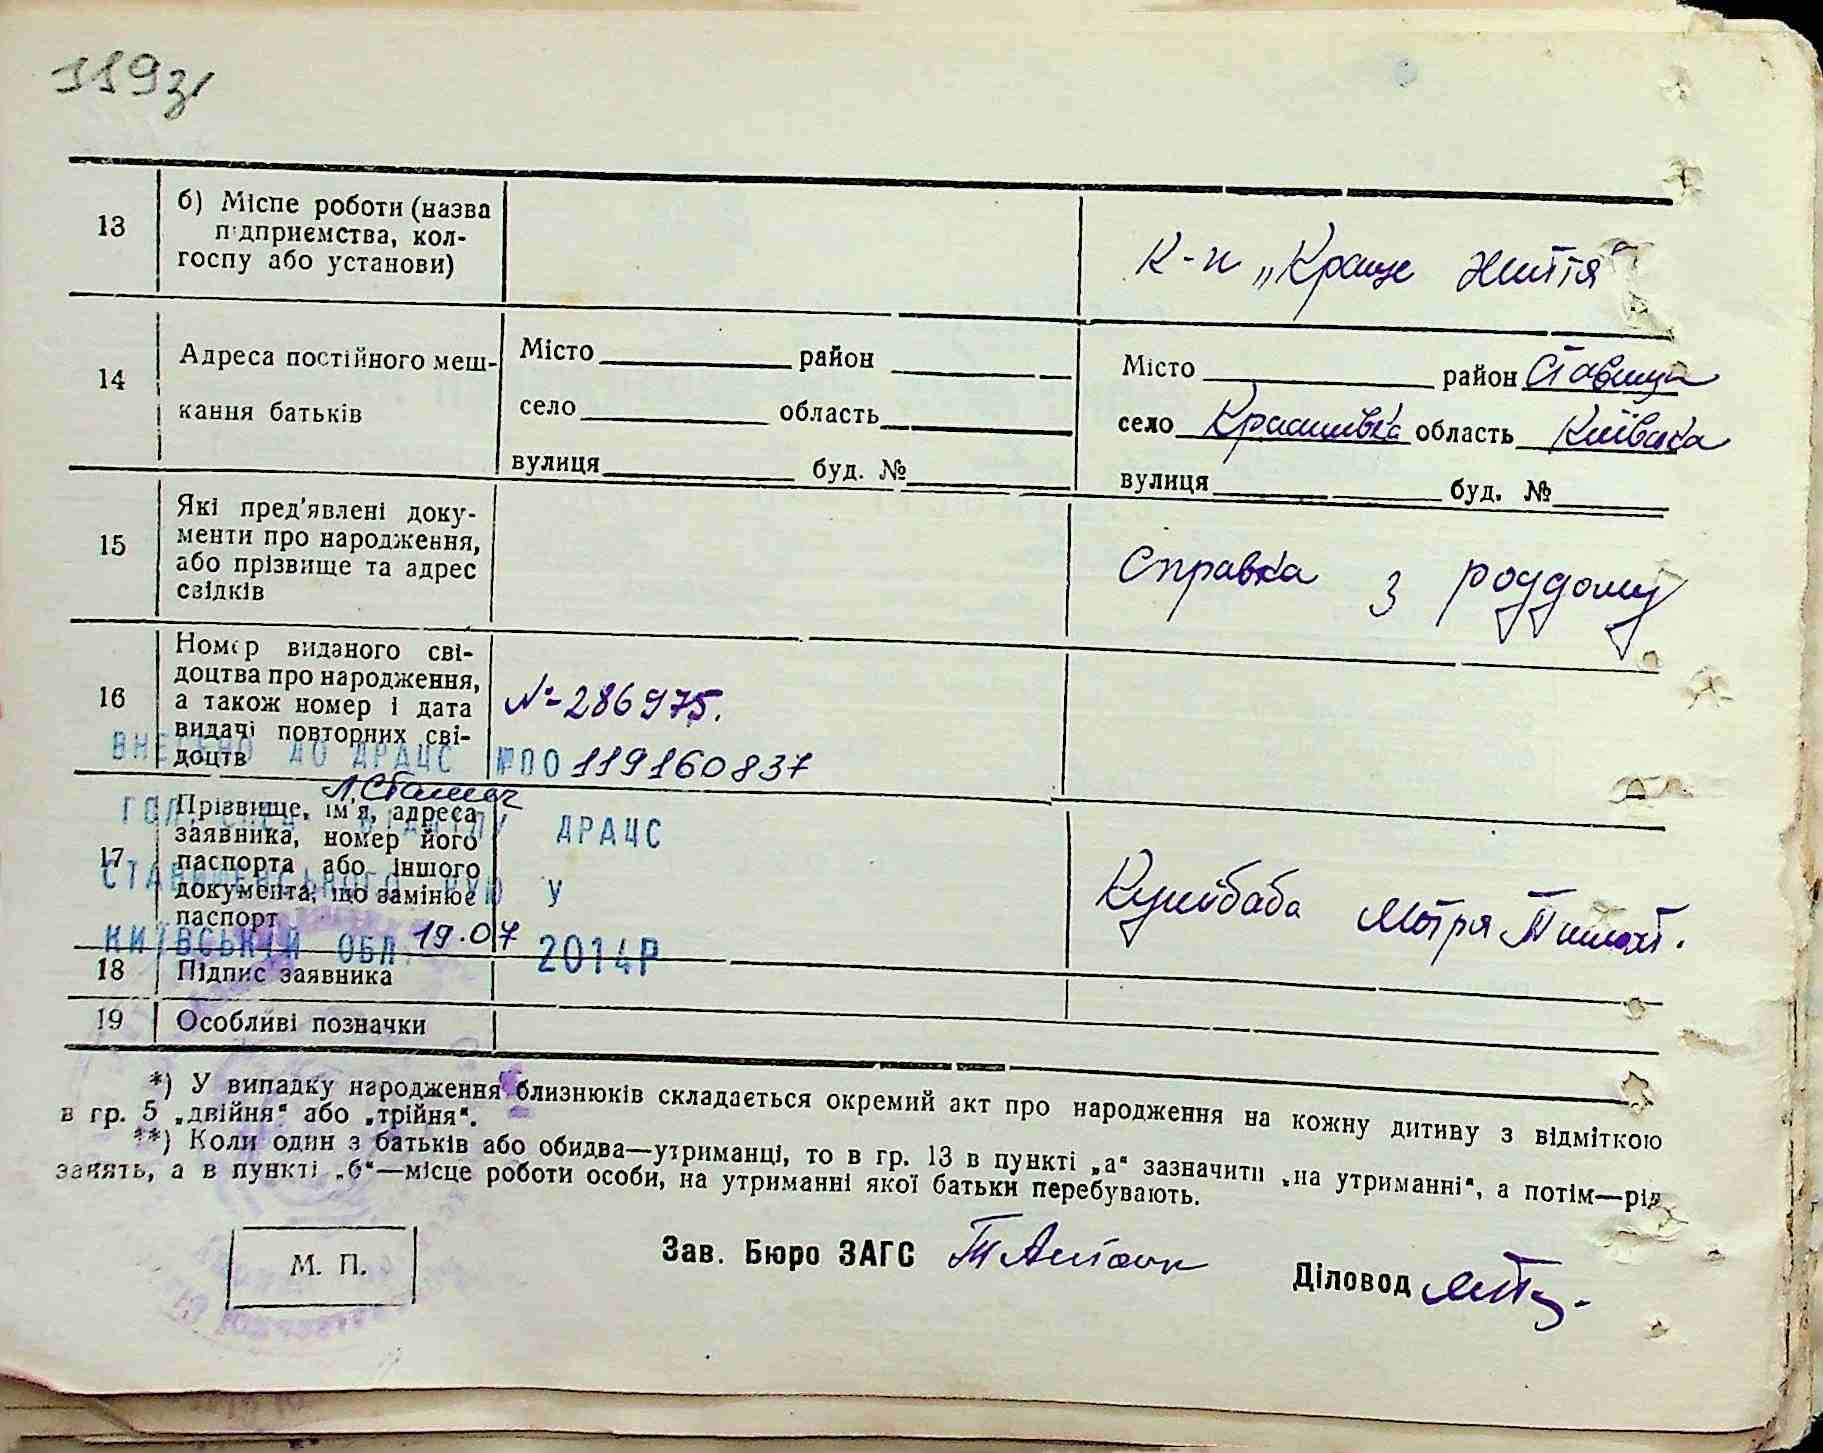 119зв
13
б) Місце роботи (назва
підприємства, кол-
госпу або установи)
К-п „Краще життя“
14
Адреса постійного меш-
кання батьків
Місто район
село область
вулиця буд. №
Місто район Ставищ
село Красилівка область Київська
вулиця буд. №
15
Які пред'явлені доку-
менти про народження,
або прізвище та адрес
свідків
Справка з роддому
16
Номер виданого сві-
доцтва про народження,
а також номер і дата
видачі повторних сві-
доцтв
№ 286975.
ВНЕСЕНО ДО ДРАЦС №ПО 119160837
17
Прізвище, ім'я, адреса
заявника, номер його
паспорта або іншого
документа, що замінює
паспорт
ДРАЦС
СТАВИЩЕНСЬКОГО РУЮ У
КИЇВСЬКІЙ ОБЛ. 19.07 2014Р
Мотря
18
Підпис заявника
19
Особливі позначки
*) У випадку народження близнюків складається окремий акт про народження на кожну дитину з відміткою
в гр. 5 „двійня“ або „трійня“.
**) Коли один з батьків або обидва—утриманці, то в гр. 13 в пункті „а“ зазначити „на утриманні“, а потім—рід
занять, а в пункті „б“—місце роботи особи, на утриманні якої батьки перебувають.
М. П.
Зав. Бюро ЗАГС
Діловод